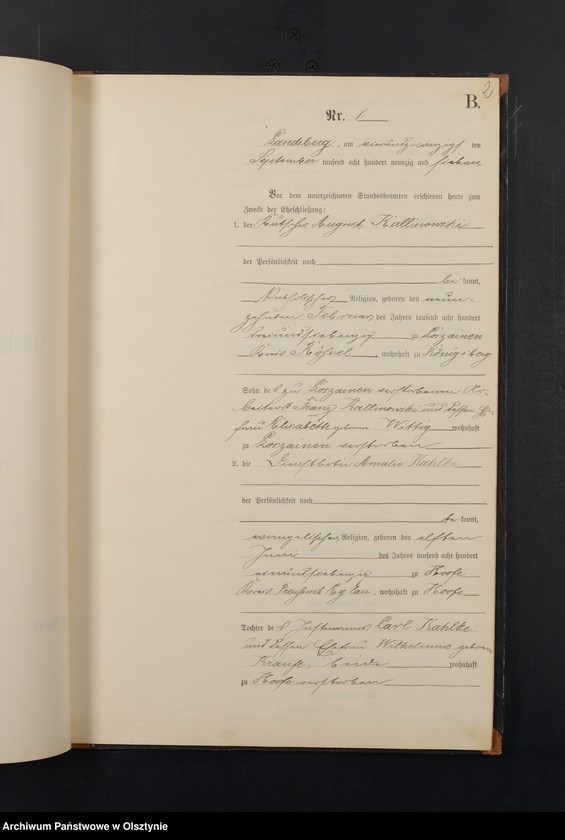 2
B.
Nr. 1
Landsberg, am vierundzwanzigsten
September tausend acht hundert neunzig und sieben
Vor dem unterzeichneten Standesbeamten erschienen heute zum
Zwecke der Eheschließung:
1. der Kutscher August Kallinowski
der Persönlichkeit nach
be kannt,
katholischer Religion, geboren den neun-
zehnten Februar des Jahres tausend acht hundert
dreiundsiebenzig zu Loszainen
Kreis Rößel, wohnhaft zu Königsberg
Sohn des zu Loszainen verstorbenen Ar-
beiters Franz Kallinowski und dessen Ehe-
frau Elisabeth geborene Wittig wohnhaft
zu Loszainen verstorben
2. die Dienstbotin Amalie Kahlke
der Persönlichkeit nach
be kannt,
evangelischer Religion, geboren den elften
Juni des Jahres tausend acht hundert
siebenzig zu Hoofe
Kreis Preußisch Eylau, wohnhaft zu Hoofe
Tochter des Instmanns Carl Kahlke
und dessen Ehefrau Wilhelmine geborene
Krause, beide wohnhaft
zu Hoofe verstorben
Archiwum Państwowe w Olsztynie